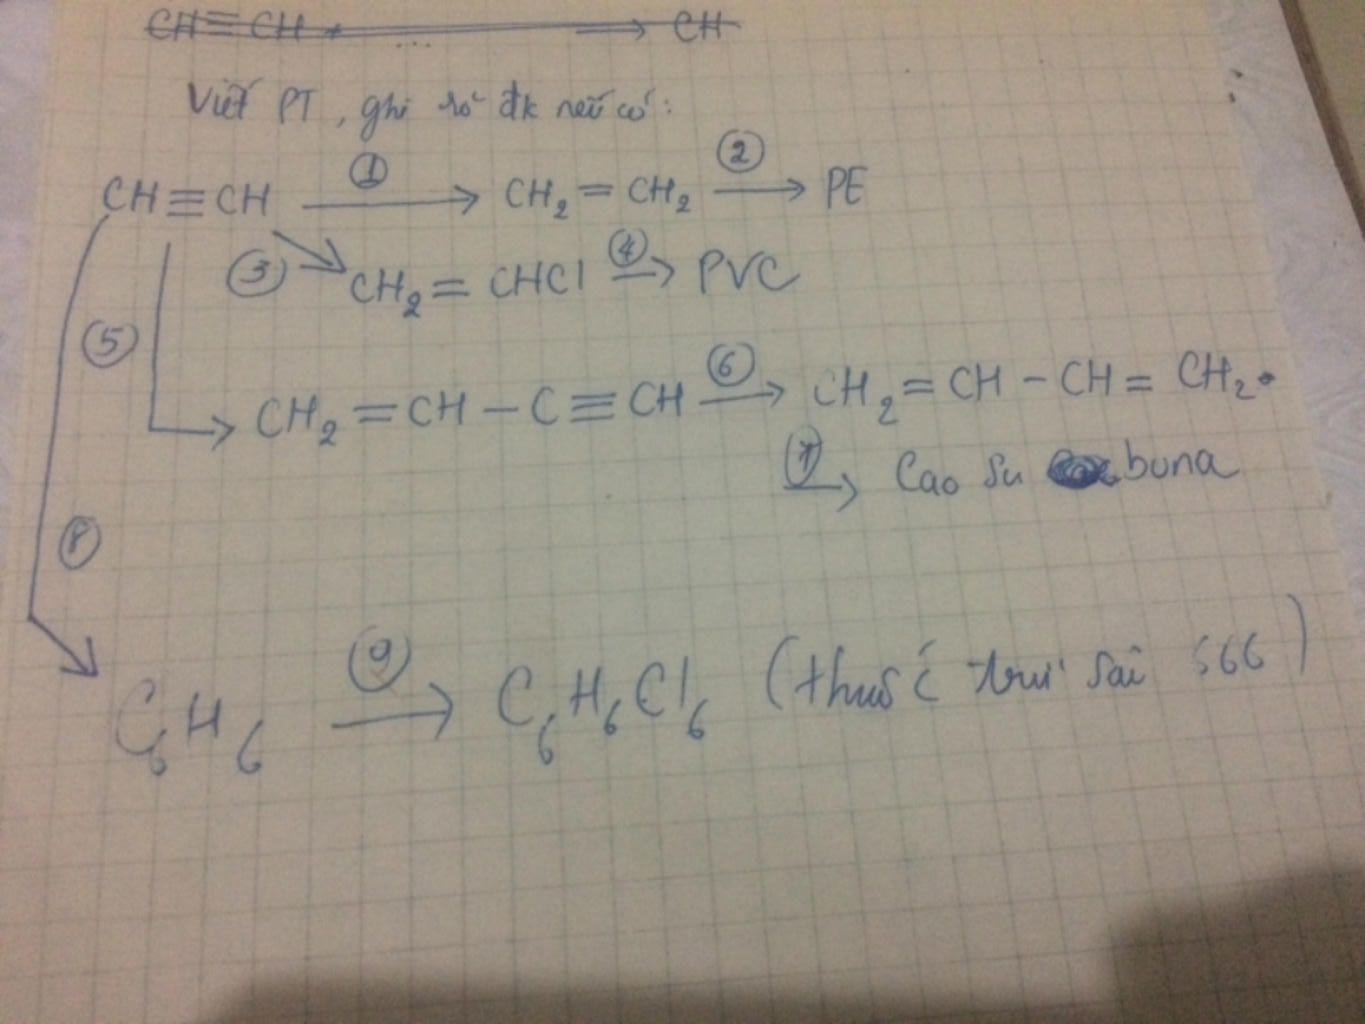 CH≡CH ... → CH
Viết PT, ghi rõ đk nếu có:
CH≡CH ① → CH₂=CH₂ ② → PE
③ CH₂=CHCl ④ → PVC
⑤ → CH₂=CH–C≡CH ⑥ → CH₂=CH–CH=CH₂.
⑦ → Cao su buna
⑧
C₆H₆ ⑨ → C₆H₆Cl₆ (thuốc trừ sâu 666)